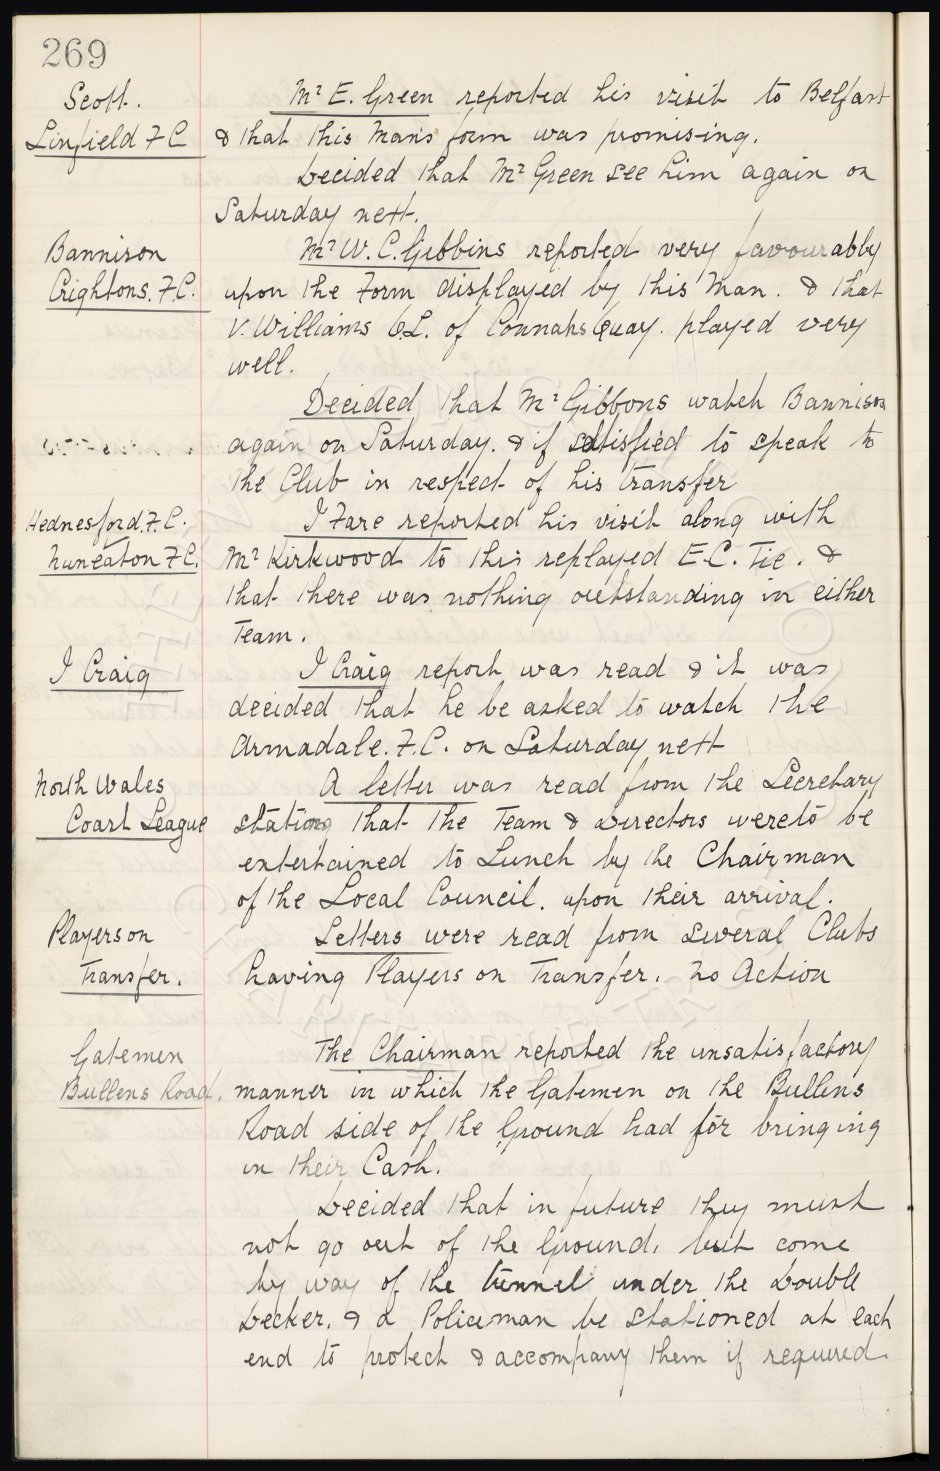 269
Scott.
Linfield F C
Mr E. Green reported his visit to Belfast
& that this Man's form was promising.
Decided that Mr Green see him again on
Saturday next.
Bannison
Crightons. F.C.
Mr W. C. Gibbins reported very favourabby
upon the Form displayed by this Man. & that
V. Williams O.L. of Connahs Quay. played very
well.
Decided that Mr Gibbons watch Bannison
again on Saturday. & if satisfied to speak to
the Club in respect of his transfer
Hednesford. F.C.
Nuneaton F.C.
I Fare reported his visit along with
Mr Kirkwood to this replayed E.C. Tie. &
that there was nothing outstanding in either
Team.
J Craig
J Craig report was read & it was
decided that he be asked to watch the
Armadale. F.C. on Saturday next
North Wales
Coast League
A letter was read from the Secretary
stating that the Team & Directors were to be
entertained to Lunch by the Chairman
of the Local Council. upon their arrival.
Players on
Transfer.
Letters were read from several Clubs
having Players on Transfer. No Action
Gatemen
Bullens Road.
The Chairman reported the unsatisfactory
manner in which the Gatemen on the Bullens
Road side of the Ground had for bringing
in their Cash.
Decided that in future they must
not go out of the Ground, but come
by way of the tunnel under the Double
Decker. & a Policeman be stationed at each
end to protect & accompany them if required